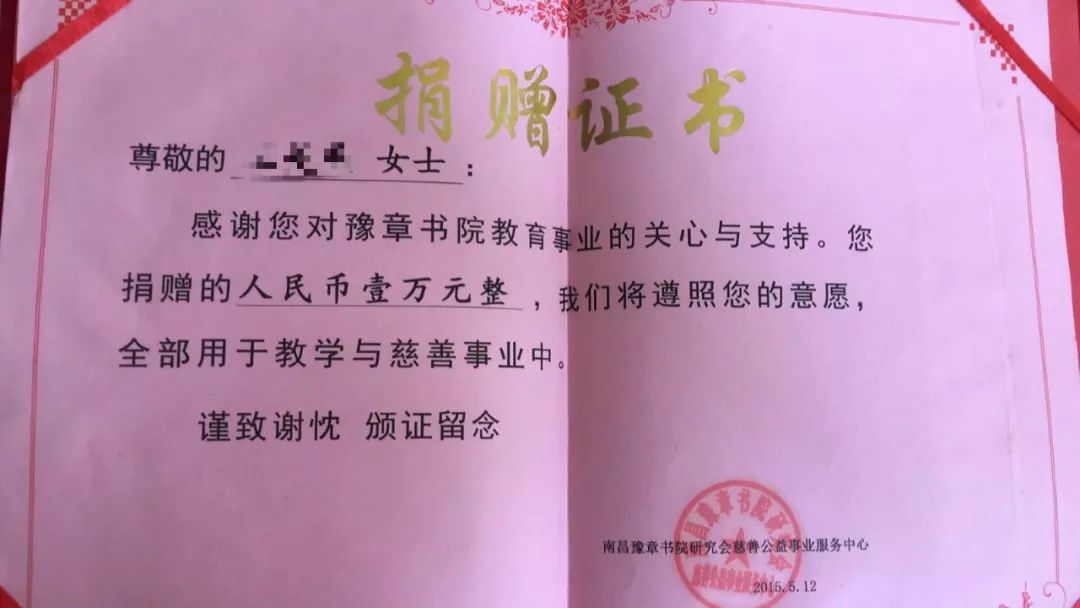 捐赠证书
尊敬的 女士：
感谢您对豫章书院教育事业的关心与支持。您
捐赠的人民币壹万元整，我们将遵照您的意愿，
全部用于教学与慈善事业中。
谨致谢忱 颁证留念
南昌豫章书院研究会慈善公益事业服务中心
2015.5.12
南昌豫章书院研究会